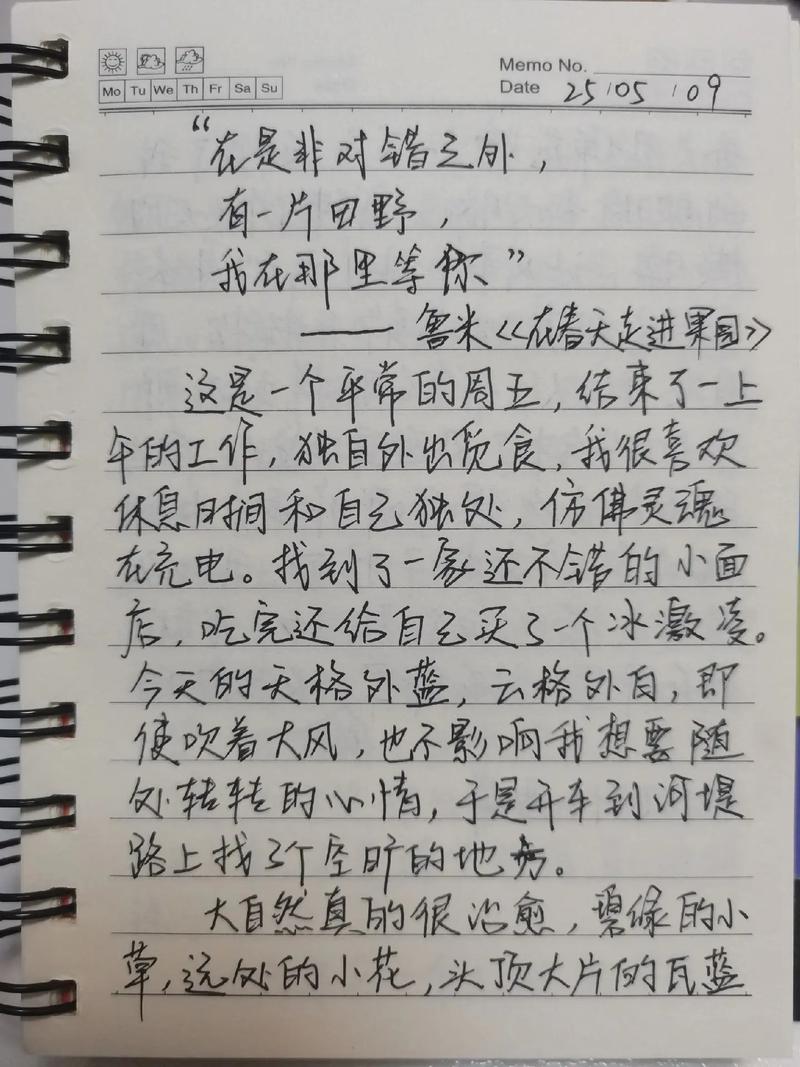 Memo No.
Mo Tu We Th Fr Sa Su
Date 25/05/09
“在是非对错之外，
有一片田野，
我在那里等你”
——鲁米《在春天走进果园》
这是一个平常的周五，结束了一上
午的工作，独自外出觅食，我很喜欢
休息时间和自己独处，仿佛灵魂
在充电。找到了一家还不错的小面
店，吃完还给自己买了一个冰激凌。
今天的天格外蓝，云格外白，即
使吹着大风，也不影响我想要随
处转转的心情，于是开车到河堤
路上找了个空旷的地方。
大自然真的很治愈，碧绿的小
草，远处的小花，头顶大片的瓦蓝